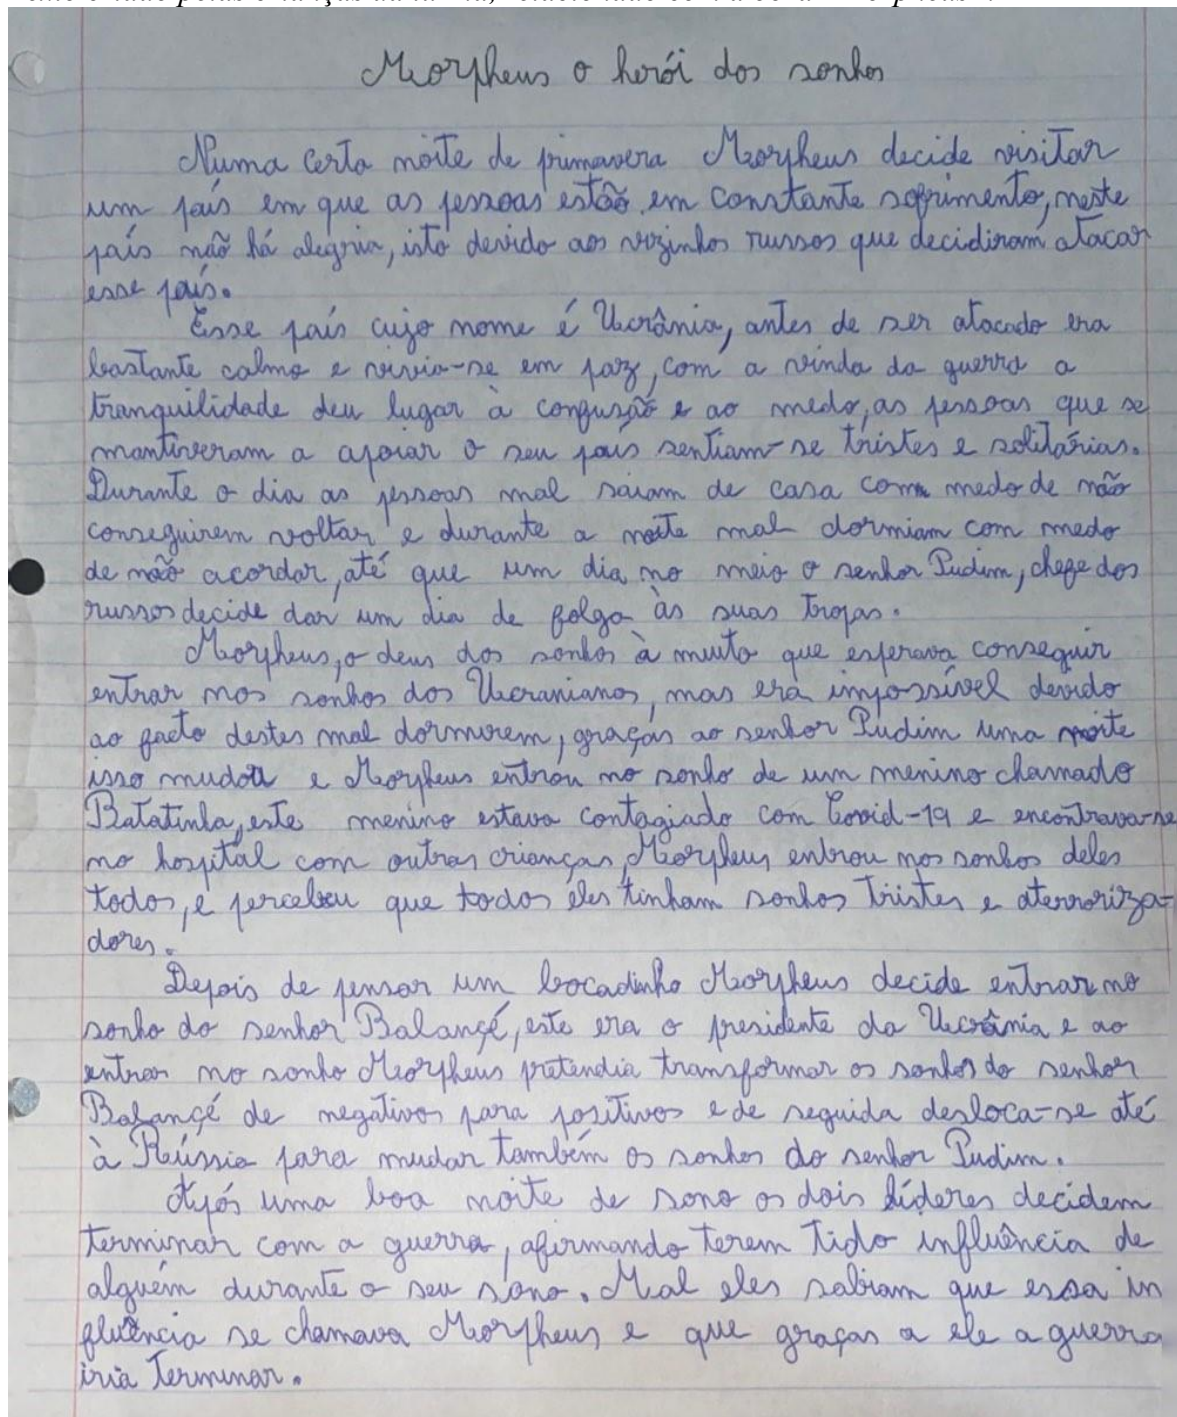 Morpheus o herói dos sonhos
Numa certa noite de primavera Morpheus decide visitar
um país em que as pessoas estão em constante sofrimento, neste
país não há alegria, isto devido aos vizinhos russos que decidiram atacar
esse país.
Esse país cujo nome é Ucrânia, antes de ser atacado era
bastante calmo e vivia-se em paz, com a vinda da guerra a
tranquilidade deu lugar à confusão e ao medo, as pessoas que se
mantiveram a apoiar o seu país sentiam-se tristes e solitárias.
Durante o dia as pessoas mal saiam de casa com medo de não
conseguirem voltar e durante a noite mal dormiam com medo
de não acordar, até que um dia no meio o senhor Pudim, chefe dos
russos decide dar um dia de folga às suas tropas.
Morpheus, o deus dos sonhos à muito que esperava conseguir
entrar nos sonhos dos Ucranianos, mas era impossível devido
ao facto destes mal dormirem, graças ao senhor Pudim uma noite
isso mudou e Morpheus entrou no sonho de um menino chamado
Batatinha, este menino estava contagiado com Covid-19 e encontrava-se
no hospital com outras crianças, Morpheus entrou nos sonhos deles
todos, e percebeu que todos eles tinham sonhos tristes e aterroriza-
dores.
Depois de pensar um bocadinho Morpheus decide entrar no
sonho do senhor Balançé, este era o presidente da Ucrânia e ao
entrar no sonho Morpheus pretendia transformar os sonhos do senhor
Balançé de negativos para positivos e de seguida desloca-se até
à Rússia para mudar também os sonhos do senhor Pudim.
Após uma boa noite de sono os dois líderes decidem
terminar com a guerra, afirmando terem tido influência de
alguém durante o seu sono. Mal eles sabiam que essa in
fluência se chamava Morpheus e que graças a ele a guerra
iria terminar.